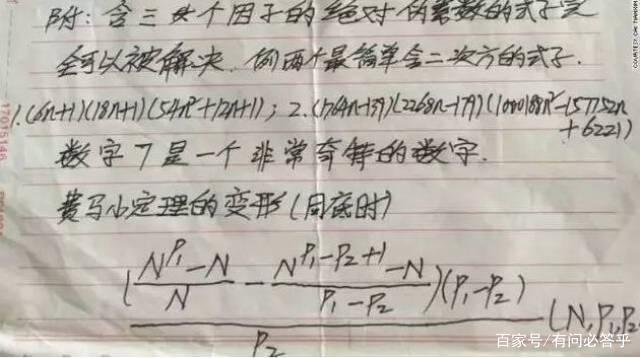 附：含三大个因子的绝对伪素数的式子完
全可以被解决.例两个最简单含二次方的式子.
1.(6n+1)(18n+1)(54n²+12n+1)；2.(1764n-139)(2268n-179)(1000188n²-157752n
+6221)
数字7是一个非常奇特的数字.
费马小定理的变形(同底时)
((N^P₁-N)/N - (N^(P₁-P₂+1)-N)/(P₁-P₂))(P₁-P₂)
P₂
(N,P₁,P₂
COURTESY CAI TIANXIN
17015146
百家号/有问必答乎